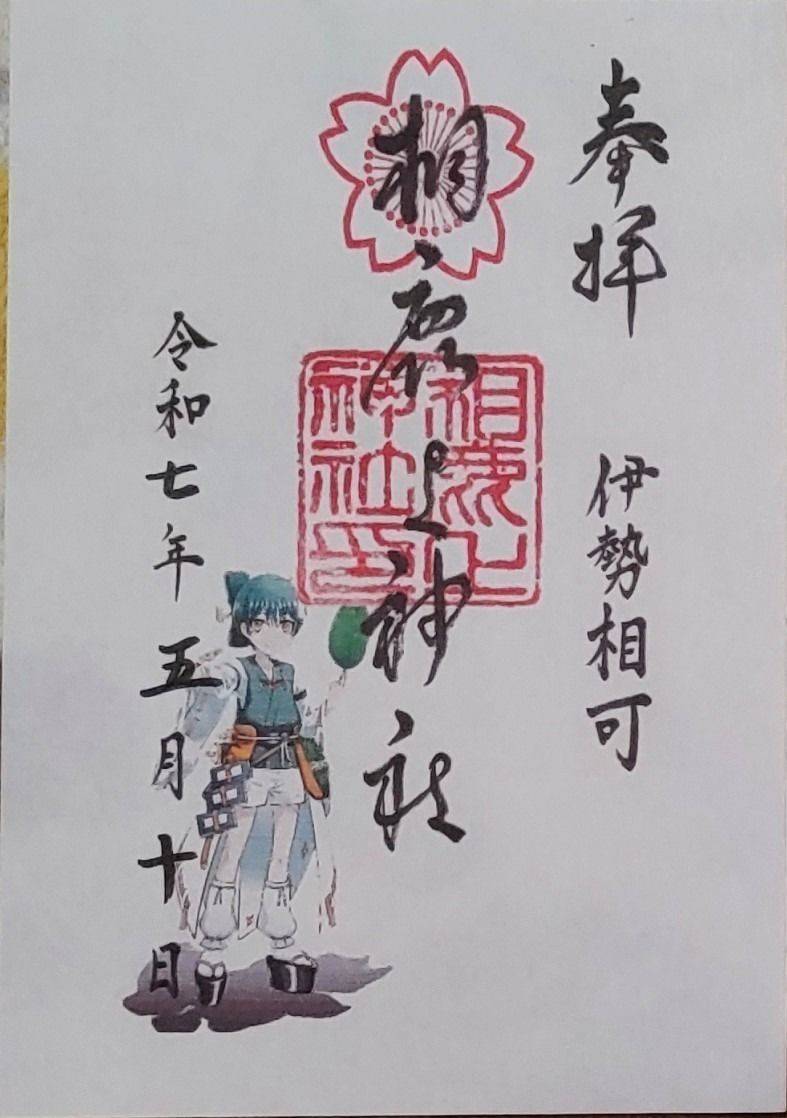 奉拝
伊勢相可
相鹿上神社
相鹿上
神社印
令和七年五月十日